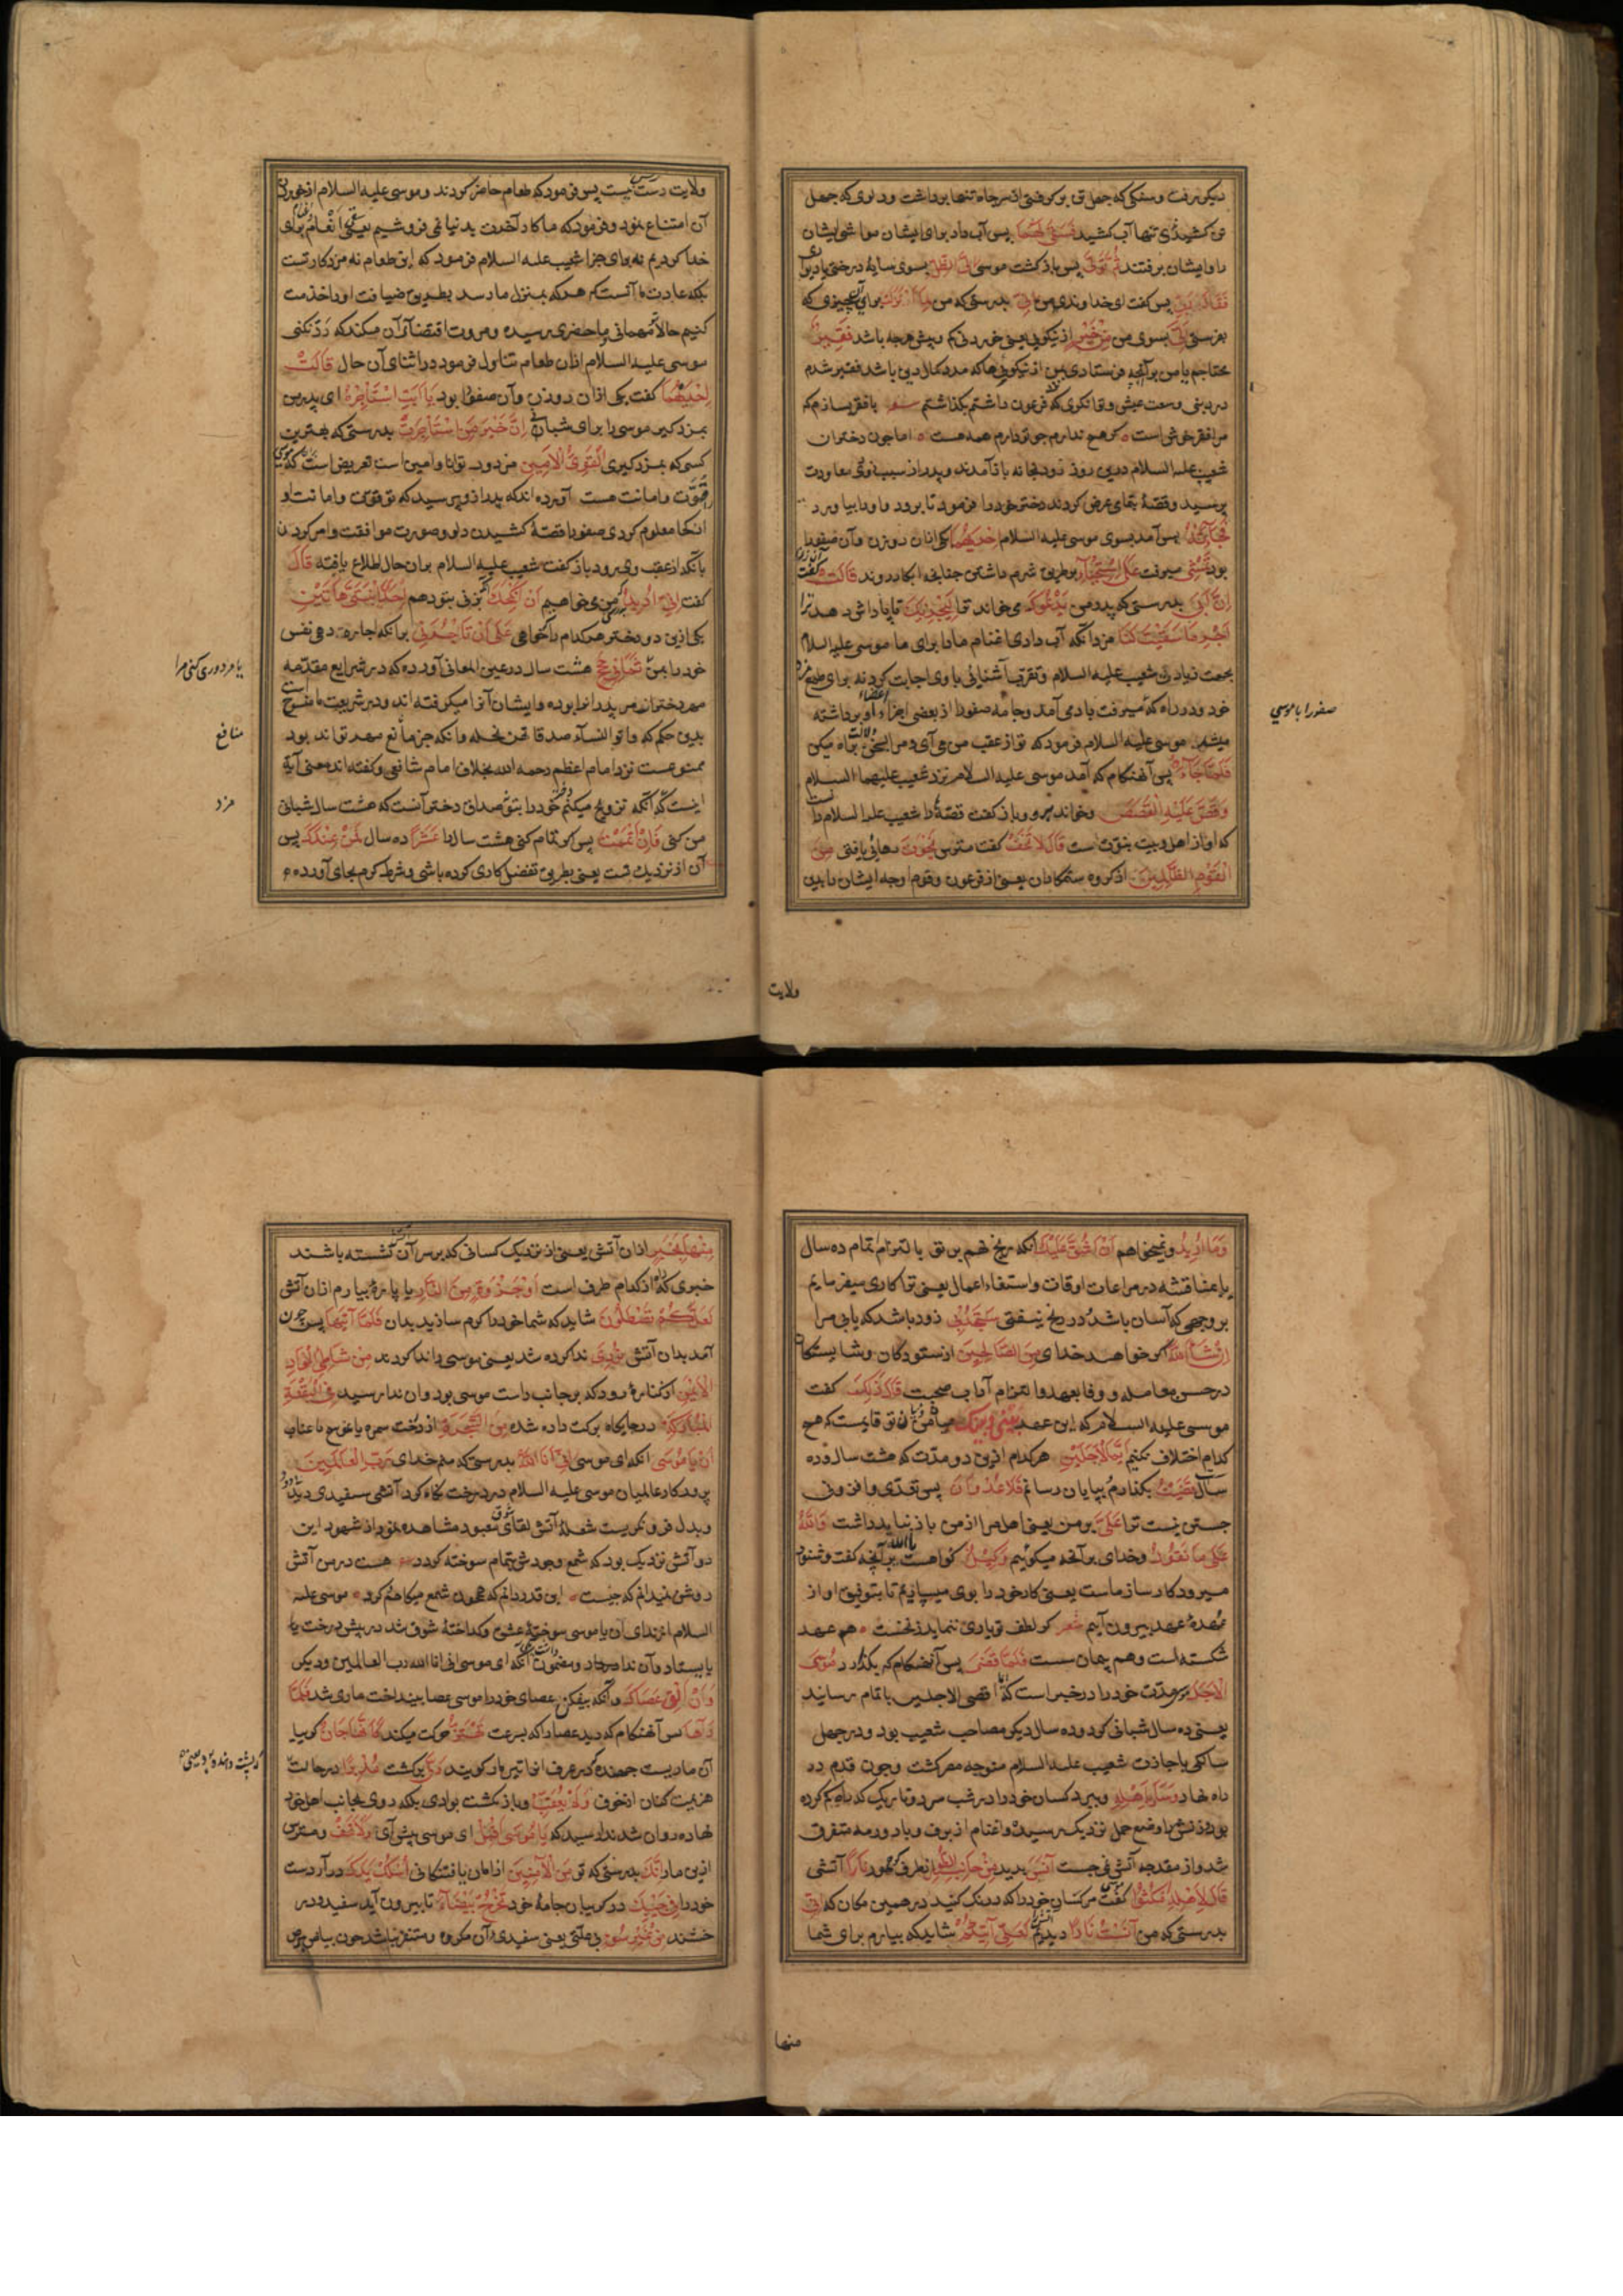 دیگر برفت و سنگی که چهل تن برگرفتی از سر چاه تنها برداشت و دلوی که چهل
تن کشیدی تنها آب کشید فَسَقَىٰ لَهُمَا پس آب داد برای ایشان مواشی ایشان
را و ایشان برفتند ثُمَّ تَوَلَّىٰ پس بازگشت موسی إِلَى الظِّلِّ بسوی سایهٔ درختی یا دیوار
فَقَالَ رَبِّ پس گفت ای خداوندی من إِنِّي بدرستی که من لِمَا أَنْزَلْتَ برای آن چیزی که
بفرستی إِلَيَّ بسوی من مِنْ خَيْرٍ از نیکویی یعنی خوردنی کم و بیش هرچه باشد فَقِيرٌ
محتاجم یا من برآنچه فرستادی بمن از نیکویی‌ها که مدد کمال دین باشد فقیر شدم
در دینی وسعت عیش و توانگری که فرعون داشتم بگذاشتم شعر با فقر بسازم که
مرا فقر خوش است گر هیچ ندارم چو تو دارم همه هست اما چون دختران
شعیب علیه السلام درین روز زود بخانه باز آمدند و پدر از سبب زودی معاودت
پرسید و قصه بتمامی عرض کردند دختر خود را فرمود تا برود و او را بیاورد
فَجَاءَتْهُ پس آمد بسوی موسی علیه السلام إِحْدَاهُمَا یکی از آن دو زن و آن صفورا
بود تَمْشِي میرفت عَلَى اسْتِحْيَاءٍ بر طریق شرم داشتن چنانچه ابکار روند قَالَتْ گفت آن زن
إِنَّ أَبِي بدرستی که پدر من يَدْعُوكَ می‌خواند ترا لِيَجْزِيَكَ تا پاداش دهد ترا
أَجْرَ مَا سَقَيْتَ لَنَا مزد آنکه آب دادی اغنام ما را برای ما موسی علیه السلام
بجهت زیارت شعیب علیه السلام و تقرب آشنائی با وی اجابت کرد نه برای طمع مزد
خود و در راه که میرفت بادی آمد و جامه صفورا از بعضی اجزاء اعضاء او برداشته
میشد موسی علیه السلام فرمود که تو از عقب من می آی و مرا بسخن دلالت براه میکن
فَلَمَّا جَاءَهُ پس آنهنگام که آمد موسی علیه السلام نزد شعیب علیهما السلام
وَقَصَّ عَلَيْهِ الْقَصَصَ و خواند برو و باز گفت قصهٔ را شعیب علیه السلام دانست
که او از اهل بیت نبوت است قَالَ لَا تَخَفْ گفت مترس نَجَوْتَ رهائی یافتی مِنَ
الْقَوْمِ الظَّالِمِينَ از گروه ستمکاران یعنی از فرعون و قوم او چه ایشان را بدین
صفورا با موسی
ولایت
ولایت دست رس نیست پس فرمود که طعام حاضر کردند و موسی علیه السلام از خوردن
آن امتناع نمود و فرمود که ما کار آخرت بدنیا نمی فروشیم یعنی سقی اغنام برای
خدا کردیم نه برای جزا شعیب علیه السلام فرمود که این طعام نه مزد کار تست
بلکه عادت ما آنست که هر که بمنزل ما رسد بطریق ضیافت او را خدمت
کنیم حالا تو مهمانی و ما حضری رسیده و مروت اقتضای آن میکند که رد نکنی
موسی علیه السلام از آن طعام تناول فرمود در اثنای آن حال قَالَتْ
إِحْدَاهُمَا گفت یکی از آن دو زن و آن صفورا بود يَا أَبَتِ اسْتَأْجِرْهُ ای پدر من
بمزد گیر موسی را برای شبانی إِنَّ خَيْرَ مَنِ اسْتَأْجَرْتَ بدرستی که بهترین
کسی که بمزد گیری الْقَوِيُّ الْأَمِينُ مزدور توانا و امین است تعریض است بآنکه موسی را
قوت و امانت هست آورده اند که پدر از وی پرسید که تو قوت و امانت او
از کجا معلوم کردی صفورا قصهٔ کشیدن دلو و صورت موافقت و امر کردن
بآنکه از عقب وی برود باز گفت شعیب علیه السلام بر آن حال اطلاع یافته قَالَ
گفت إِنِّي أُرِيدُ من می‌خواهم أَنْ أُنْكِحَكَ که بزنی بتو دهم إِحْدَى ابْنَتَيَّ هَاتَيْنِ
یکی ازین دو دختر هر کدام را خواهی عَلَىٰ أَنْ تَأْجُرَنِي بر آنکه اجاره دهی نفس
خود را بمن ثَمَانِيَ حِجَجٍ هشت سال در عین المعانی آورده که در شرایع متقدمه
مهر دختران مر پدر انرا بوده و ایشان آنرا میگرفته اند و در شریعت ما منسوخ است
بدین حکم که و آتوا النساء صدقاتهن نحلة و آنکه جز مانع مهر تواند بود
ممنوعست نزد امام اعظم رحمه الله بخلاف امام شافعی و گفته اند معنی آیة
اینست که آنکه تزویج میکنم دختر خود را بتو صداق دختر آنست که هشت سال شبانی
من کنی فَإِنْ أَتْمَمْتَ پس گر تمام کنی هشت سال را عَشْرًا ده سال فَمِنْ عِنْدِكَ پس
آن از نزدیک تست یعنی بطریق تفضل کاری کرده باشی و شرط کرم بجای آورده
یا مزدوری کنی مرا
منافع
مزد
وَمَا أُرِيدُ و نمیخواهم أَنْ أَشُقَّ عَلَيْكَ آنکه رنج نهم بر تو بالتزام اتمام ده سال
یا مناقشه در مراعات اوقات و استیفاء اعمال یعنی ترا کاری میفرمایم
بر وجهی که آسان باشد و در رنج نیفتی سَتَجِدُنِي زود باشد که یابی مرا
إِنْ شَاءَ اللَّهُ اگر خواهد خدای مِنَ الصَّالِحِينَ از ستودگان و شایستگان
در حسن معامله و وفا بعهد و التزام آداب صحبت قَالَ ذَٰلِكَ گفت
موسی علیه السلام که این عهد بَيْنِي وَبَيْنَكَ میان من و میان تو قایمست که هیچ
کدام اختلاف نکنیم أَيَّمَا الْأَجَلَيْنِ هر کدام ازین دو مدت که هشت سال و ده
سال قَضَيْتُ بگذارم و بپایان رسانم فَلَا عُدْوَانَ پس تعدی و افزونی
جستن نیست ترا عَلَيَّ بر من یعنی اهل مرا از من باز نباید داشت وَاللَّهُ
عَلَىٰ مَا نَقُولُ و خدای بر آنچه میگوئیم وَكِيلٌ گواهست یا الله بر آنچه گفت و شنود
میرود کارساز ماست یعنی کار خود را بوی میسپاریم تا بتوفیق او از
عهدهٔ عهد بیرون آییم شعر گر لطف تو یاری ننماید ز نخست هم عهد
شکسته است و هم پیمان سست فَلَمَّا قَضَىٰ پس آنهنگام که بگذارد مُوسَى
الْأَجَلَ مر مدت خود را در خبر است که اقصی الاجلین باتمام رسانید
یعنی ده سال شبانی کرد و ده سال دیگر مصاحب شعیب بود و در چهل
سالگی باجازت شعیب علیه السلام متوجه مصر گشت و چون قدم در
راه نهاد وَسَارَ بِأَهْلِهِ و ببرد کسان خود را در شب سرد و تاریک که راه گم کرده
بود و زنش را وضع حمل نزدیک رسیده و اغنام از برف و باد و رمه متفرق
شد و از مقدحه آتش نمی جست آنَسَ بدید مِنْ جَانِبِ الطُّورِ از طرف کوه طور نَارًا آتشی
قَالَ لِأَهْلِهِ امْكُثُوا گفت موسی مر کسان خود را که درنگ کنید در همین مکان که إِنِّي
بدرستی که من آنَسْتُ نَارًا دیدم آتشی لَعَلِّي آتِيكُمْ شاید که بیارم برای شما
منها
مِنْهَا بِخَبَرٍ از آن آتش یعنی از نزدیک کسانی که بر سر آن نشسته باشند
خبری که راه از کدام طرف است أَوْ جَذْوَةٍ مِنَ النَّارِ یا پارهٔ بیارم از آن آتش
لَعَلَّكُمْ تَصْطَلُونَ شاید که شما خود را گرم سازید بدان فَلَمَّا أَتَاهَا پس چون
آمد بدان آتش نُودِيَ ندا کرده شد یعنی موسی را ندا کردند مِنْ شَاطِئِ الْوَادِ
الْأَيْمَنِ از کنارهٔ رود که بر جانب راست موسی بود و آن ندا رسید فِي الْبُقْعَةِ
الْمُبَارَكَةِ در جایگاه برکت داده شده مِنَ الشَّجَرَةِ از درخت سمره یا عوسج یا عناب
أَنْ يَا مُوسَىٰ آنکه ای موسی إِنِّي أَنَا اللَّهُ بدرستی که منم خدای رَبُّ الْعَالَمِينَ
پروردگار عالمیان موسی علیه السلام در درخت نگاه کرد آتشی سفیدی دید بی دود
و بدل فرو نگریست شعلهٔ آتش شوق لقای معبود مشاهده نمود از شهود این
دو آتش نزدیک بود که شمع وجودش بتمام سوخته گردد هست در من آتش
روشن نمیدانم که چیست این قدر دانم که همچون شمع میکاهم کرد موسی علیه
السلام از ندای آن یا موسی سوختهٔ عشق و گداختهٔ شوق شد در پیش درخت یا
بایستاد و آن ندا در داد و مضمون آنکه ای موسی انی انا الله رب العالمین و دیگر
وَأَنْ أَلْقِ عَصَاكَ و آنکه بیفکن عصای خود را موسی عصا بینداخت ماری شد فَلَمَّا
رَآهَا پس آنهنگام که دید عصا را که بسرعت تَهْتَزُّ حرکت میکند كَأَنَّهَا جَانٌّ گوییا
آن ماریست جهنده که در عرف آنرا تیر مار گویند وَلَّىٰ برگشت مُدْبِرًا در حالت
هزیمت کنان از خوف وَلَمْ يُعَقِّبْ و باز نگشت بوادی بلکه روی بجانب اهل خود
نهاده روان شد ندا رسید که يَا مُوسَىٰ أَقْبِلْ ای موسی پیش آی وَلَا تَخَفْ و مترس
ازین مار إِنَّكَ بدرستی که تو مِنَ الْآمِنِينَ از امان یافتگانی اسْلُكْ يَدَكَ در آر دست
خود را فِي جَيْبِكَ در گریبان جامهٔ خود تَخْرُجْ بَيْضَاءَ تا بیرون آید سفید و در
خشند مِنْ غَيْرِ سُوءٍ بی علتی یعنی سفیدی آن مکروه و متنفر نباشد چون بیاض برص